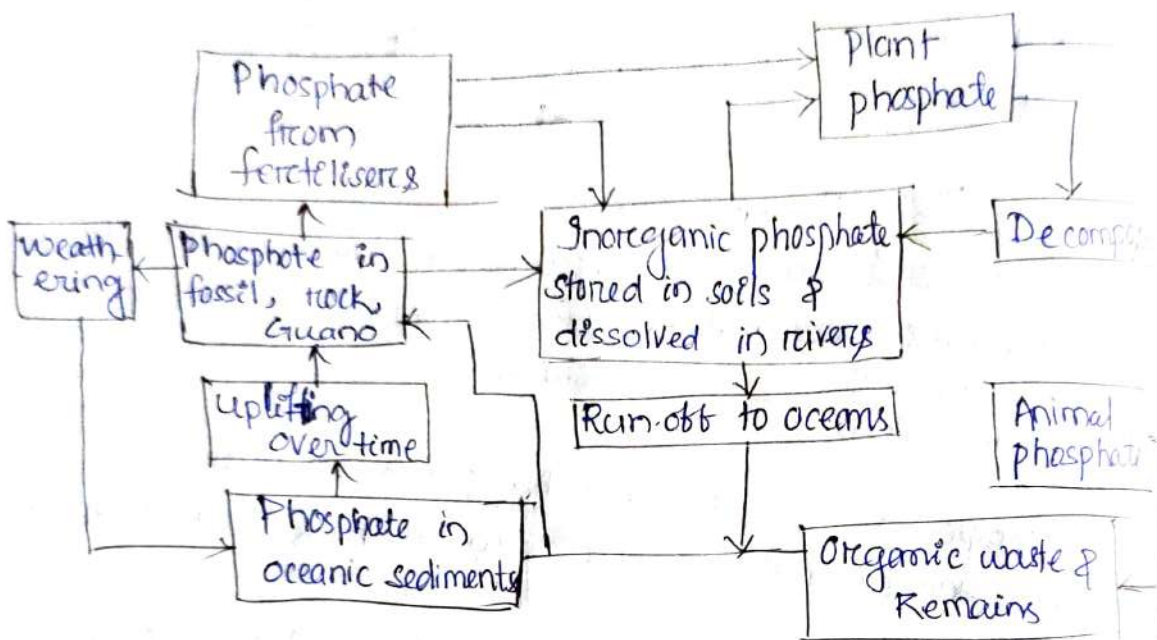 Phosphate
from
fertilisers
Plant
phosphate
Weath-
ering
Phosphote in
fossil, rock,
Guano
Inorganic phosphate
stored in soils &
dissolved in rivers
Decompo
uplifting
over time
Run-off to oceans
Animal
phosphate
Phosphate in
oceanic sediments
Organic waste &
Remains